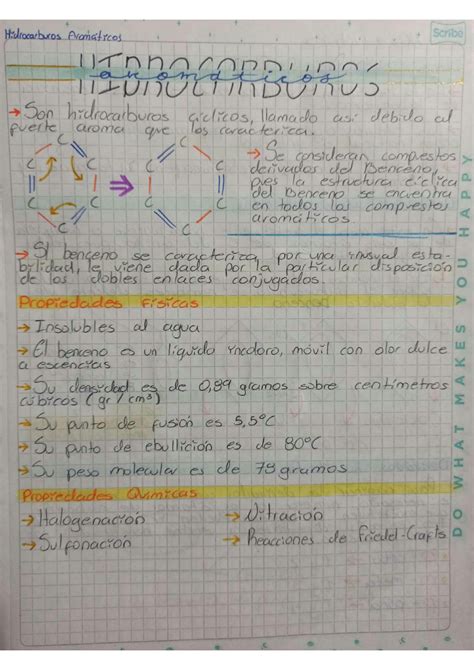 Hidrocarburos Aromáticos
Scribe
HIDROCARBUROS
aromáticos
→ Son hidrocarburos ciclicos, llamado asi debido al
fuerte aroma que los caracteriza.
C C C C C C
C C C C C C
→ Se consideran compuestos
derivados del Benceno,
pues la estructura ciclica
del Benceno se encuentra
en todos los compuestos
aromáticos.
→ El benceno se caracteriza por una inusual esta-
bilidad, le viene dada por la particular disposición
de los dobles enlaces conjugados.
Propiedades Físicas
→ Insolubles al agua
→ El benceno es un liquido incoloro, móvil con olor dulce
a esencias
→ Su densidad es de 0,89 gramos sobre centímetros
cúbicos (gr / cm³)
→ Su punto de fusión es 5,5°C
→ Su punto de ebullición es de 80°C
→ Su peso molecular es de 79 gramos
Propiedades Químicas
→ Halogenación
→ Nitración
→ Sulfonación
→ Reacciones de Friedel-Crafts
DO WHAT MAKES YOU HAPPY